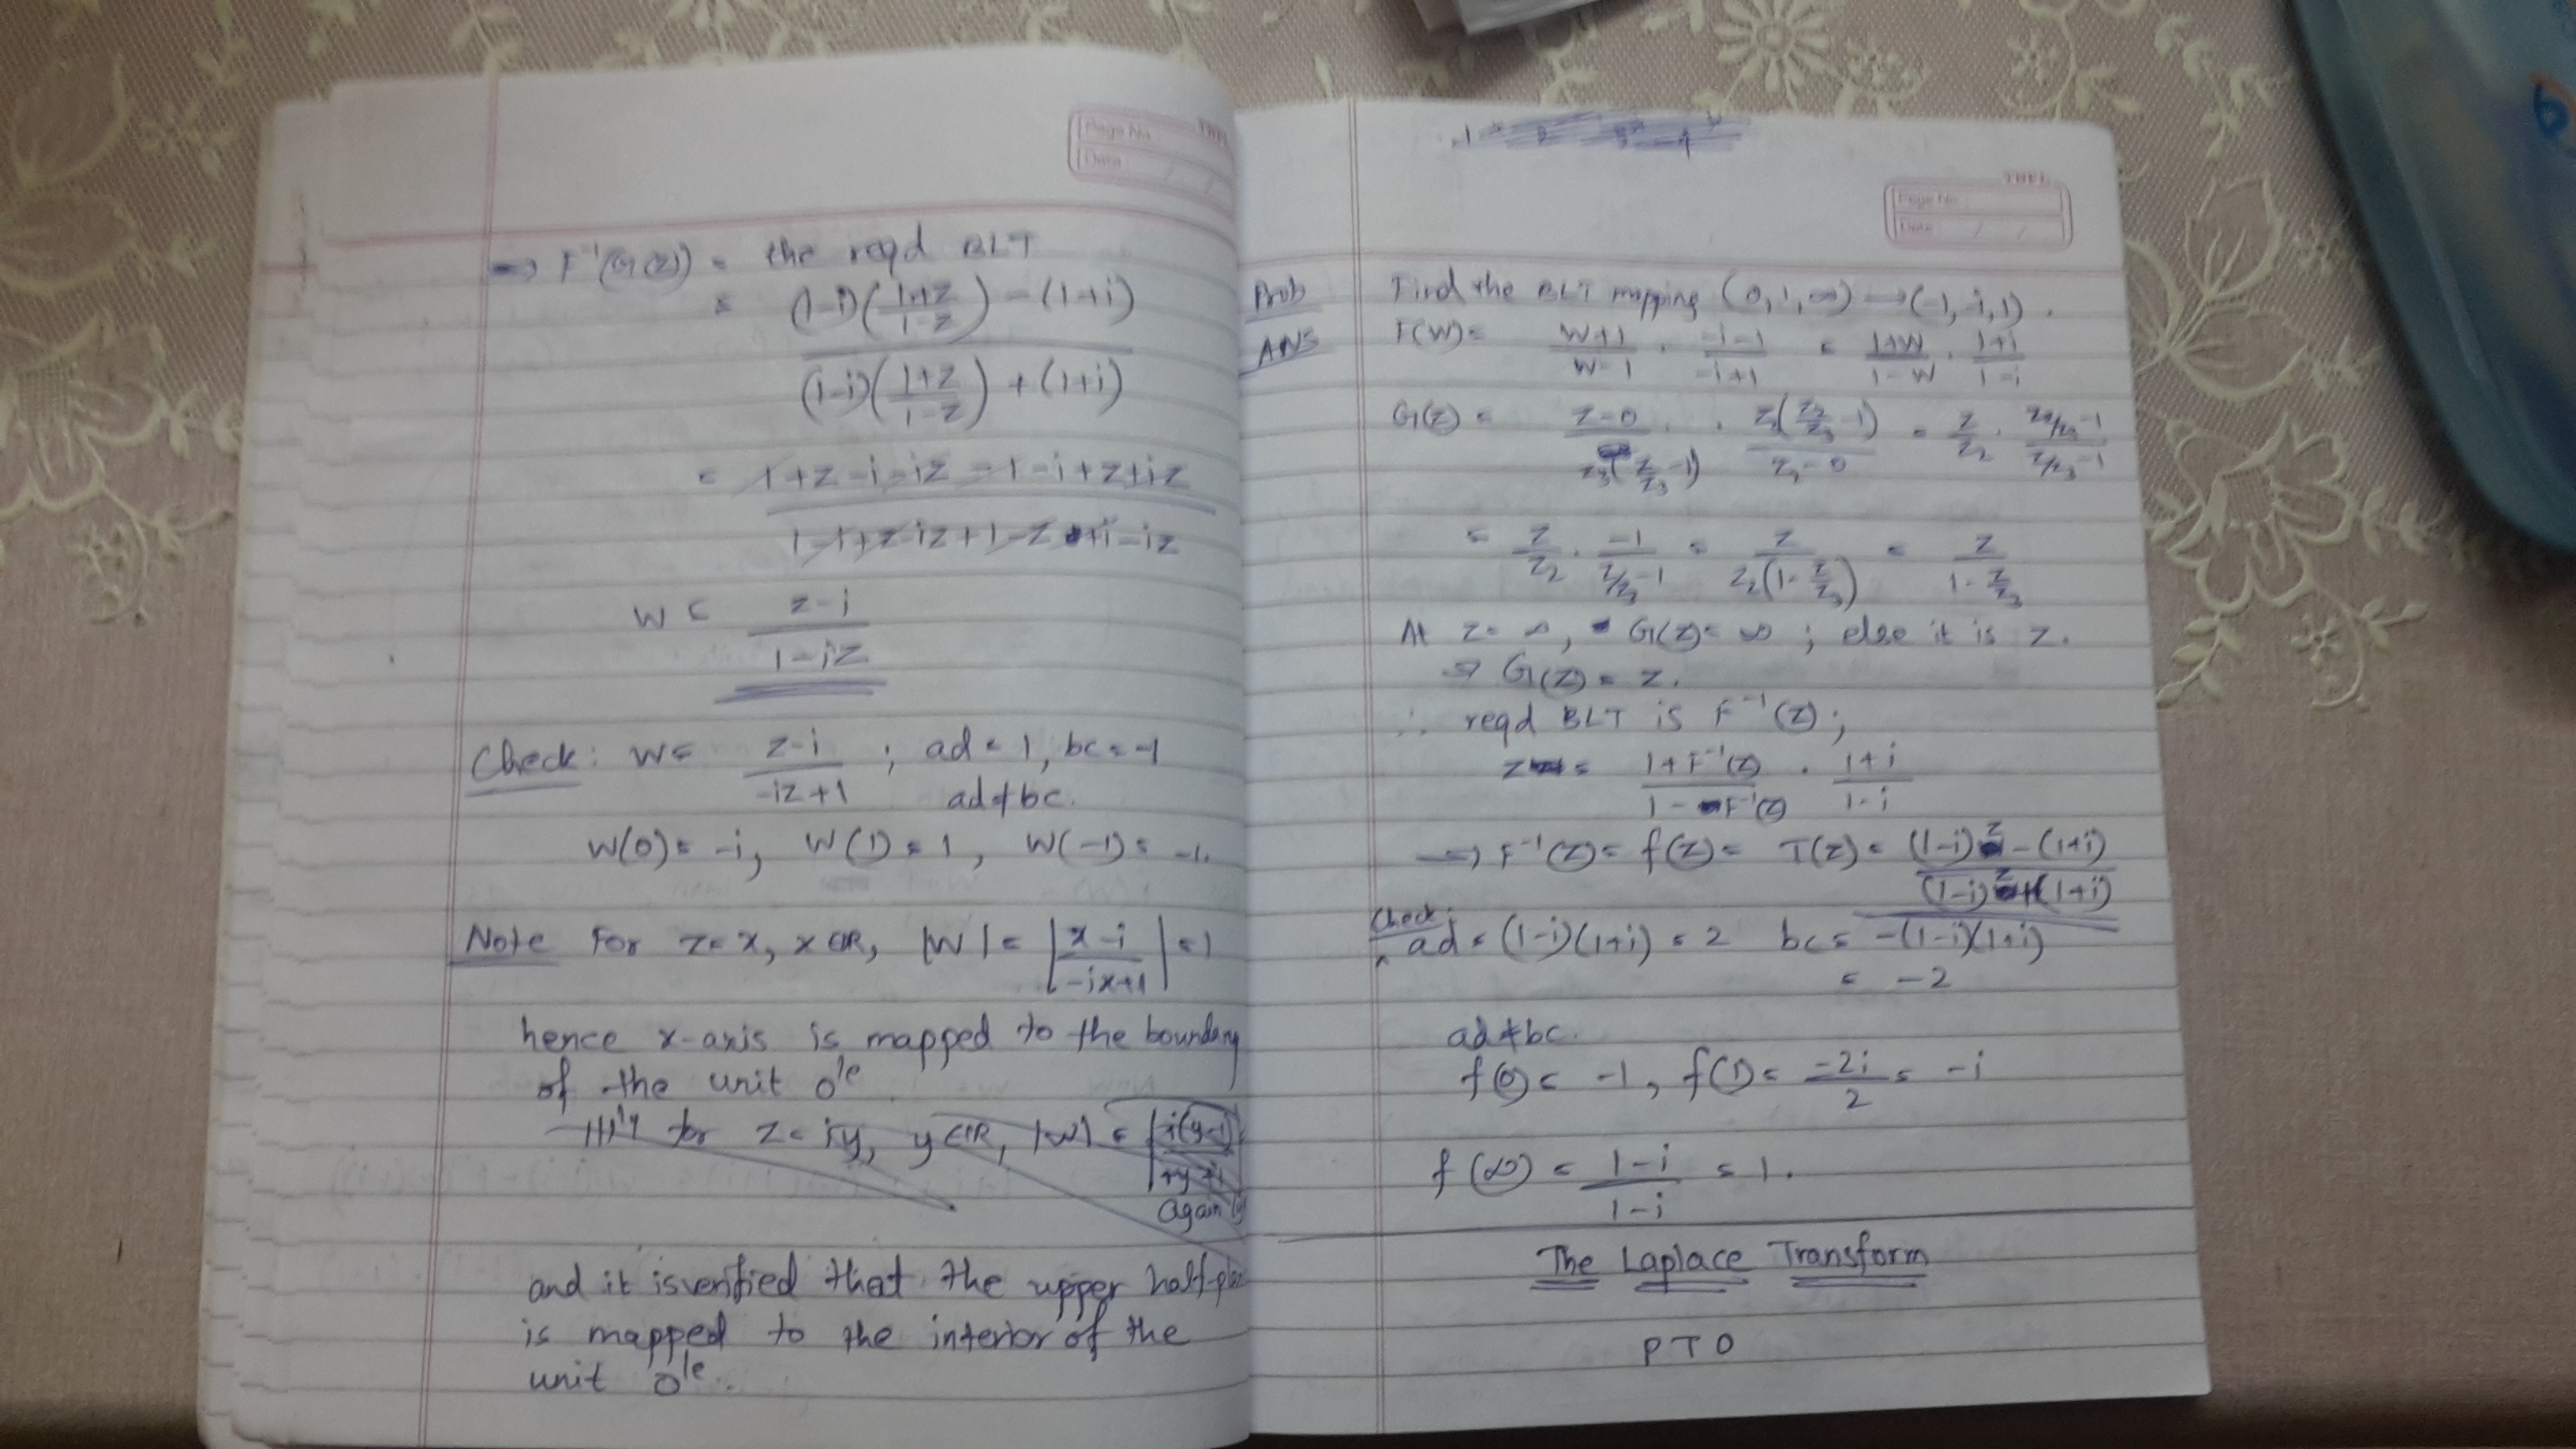 Page No.
Date / /
→ F⁻¹(G(z)) = the reqd BLT
= ((1-i)((1+z)/(1-z)) - (1+i)) / ((1-i)((1+z)/(1-z)) + (1+i))
= (1+z-i-iz-1-i+z+iz) / (1-i+z-iz+1-z+i-iz)
W = (z-i)/(1-iz)
Check: W = (z-i)/(-iz+1) ; ad = 1, bc = -1
ad ≠ bc.
W(0) = -i, W(1) = 1, W(-1) = -1.
Note For z=x, x∈R, |W| = |(x-i)/(-ix+1)| = 1
hence x-axis is mapped to the boundary
of the unit Ole
Illly for z = iy, y∈R, |W| = |i(y-1)/
Again
and it is verified that the upper half-
is mapped to the interior of the
unit Ole.
TNPL
Page No.
Date / /
Prob Find the BLT mapping (0, 1, ∞) → (-1, -i, 1).
ANS F(W) = (W+1)/(W-1) · (-i-1)/(-i+1) = (1+W)/(1-W) · (1+i)/(1-i)
G(z) = (z-0)/(z₃(z/z₃ -1)) · z₃(z₂/z₃ -1)/(z₂-0) = z/z₂ · (z₂/z₃-1)/(z/z₃-1)
= z/z₂ · -1/(z/z₃-1) = z/(z₂(1-z/z₃)) = z/(1-z/z₃)
At z = ∞, G(z) = ∞ ; else it is z.
⇒ G(z) = z.
∴ reqd BLT is F⁻¹(z);
z = (1+F⁻¹(z))/(1-F⁻¹(z)) · (1+i)/(1-i)
⇒ F⁻¹(z) = f(z) = T(z) = ((1-i)z-(1+i))/((1-i)z+(1+i))
Check:
ad = (1-i)(1+i) = 2 bc = -(1-i)(1+i)
= -2
ad ≠ bc.
f(0) = -1, f(1) = -2i/2 = -i
f(∞) = (1-i)/(1-i) = 1.
The Laplace Transform
PTO